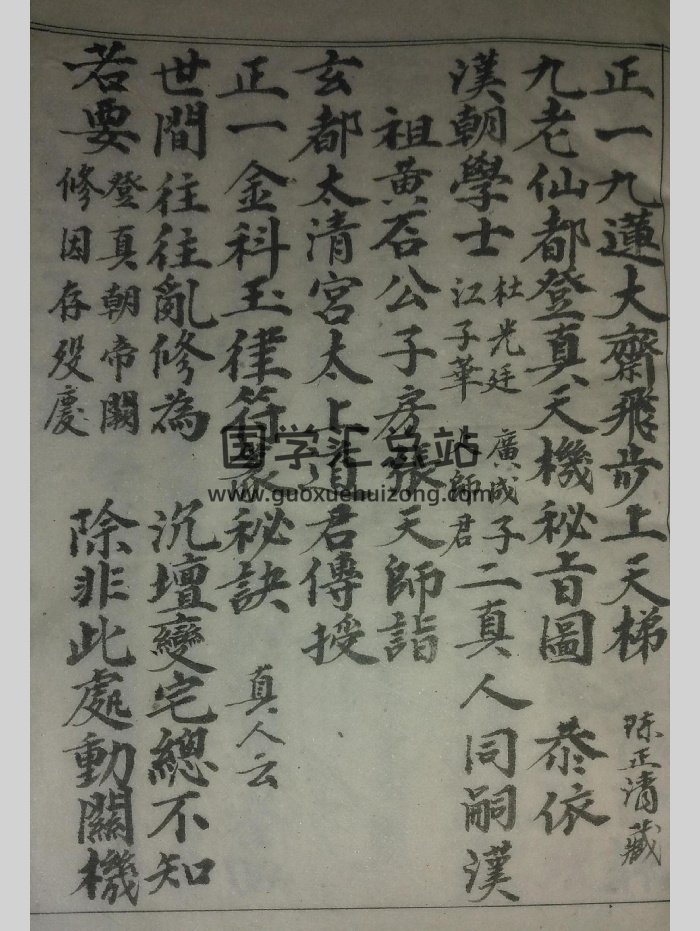 正一九蓮大齋飛步上天梯
陈正清藏
九老仙都登真天機秘旨圖 恭依
漢朝學士 杜光廷 廣成子 江子華 師君 二真人同嗣漢
祖黃石公子房張天師詣
玄都太清宮太上道君傳授
正一金科玉律符 秘訣 真人云
世間往往亂修為 沉壇變宅總不知
若要 登真朝帝闕 修因存歿慶 除非此處動關機
国学汇总站
www.guoxuehuizong.com